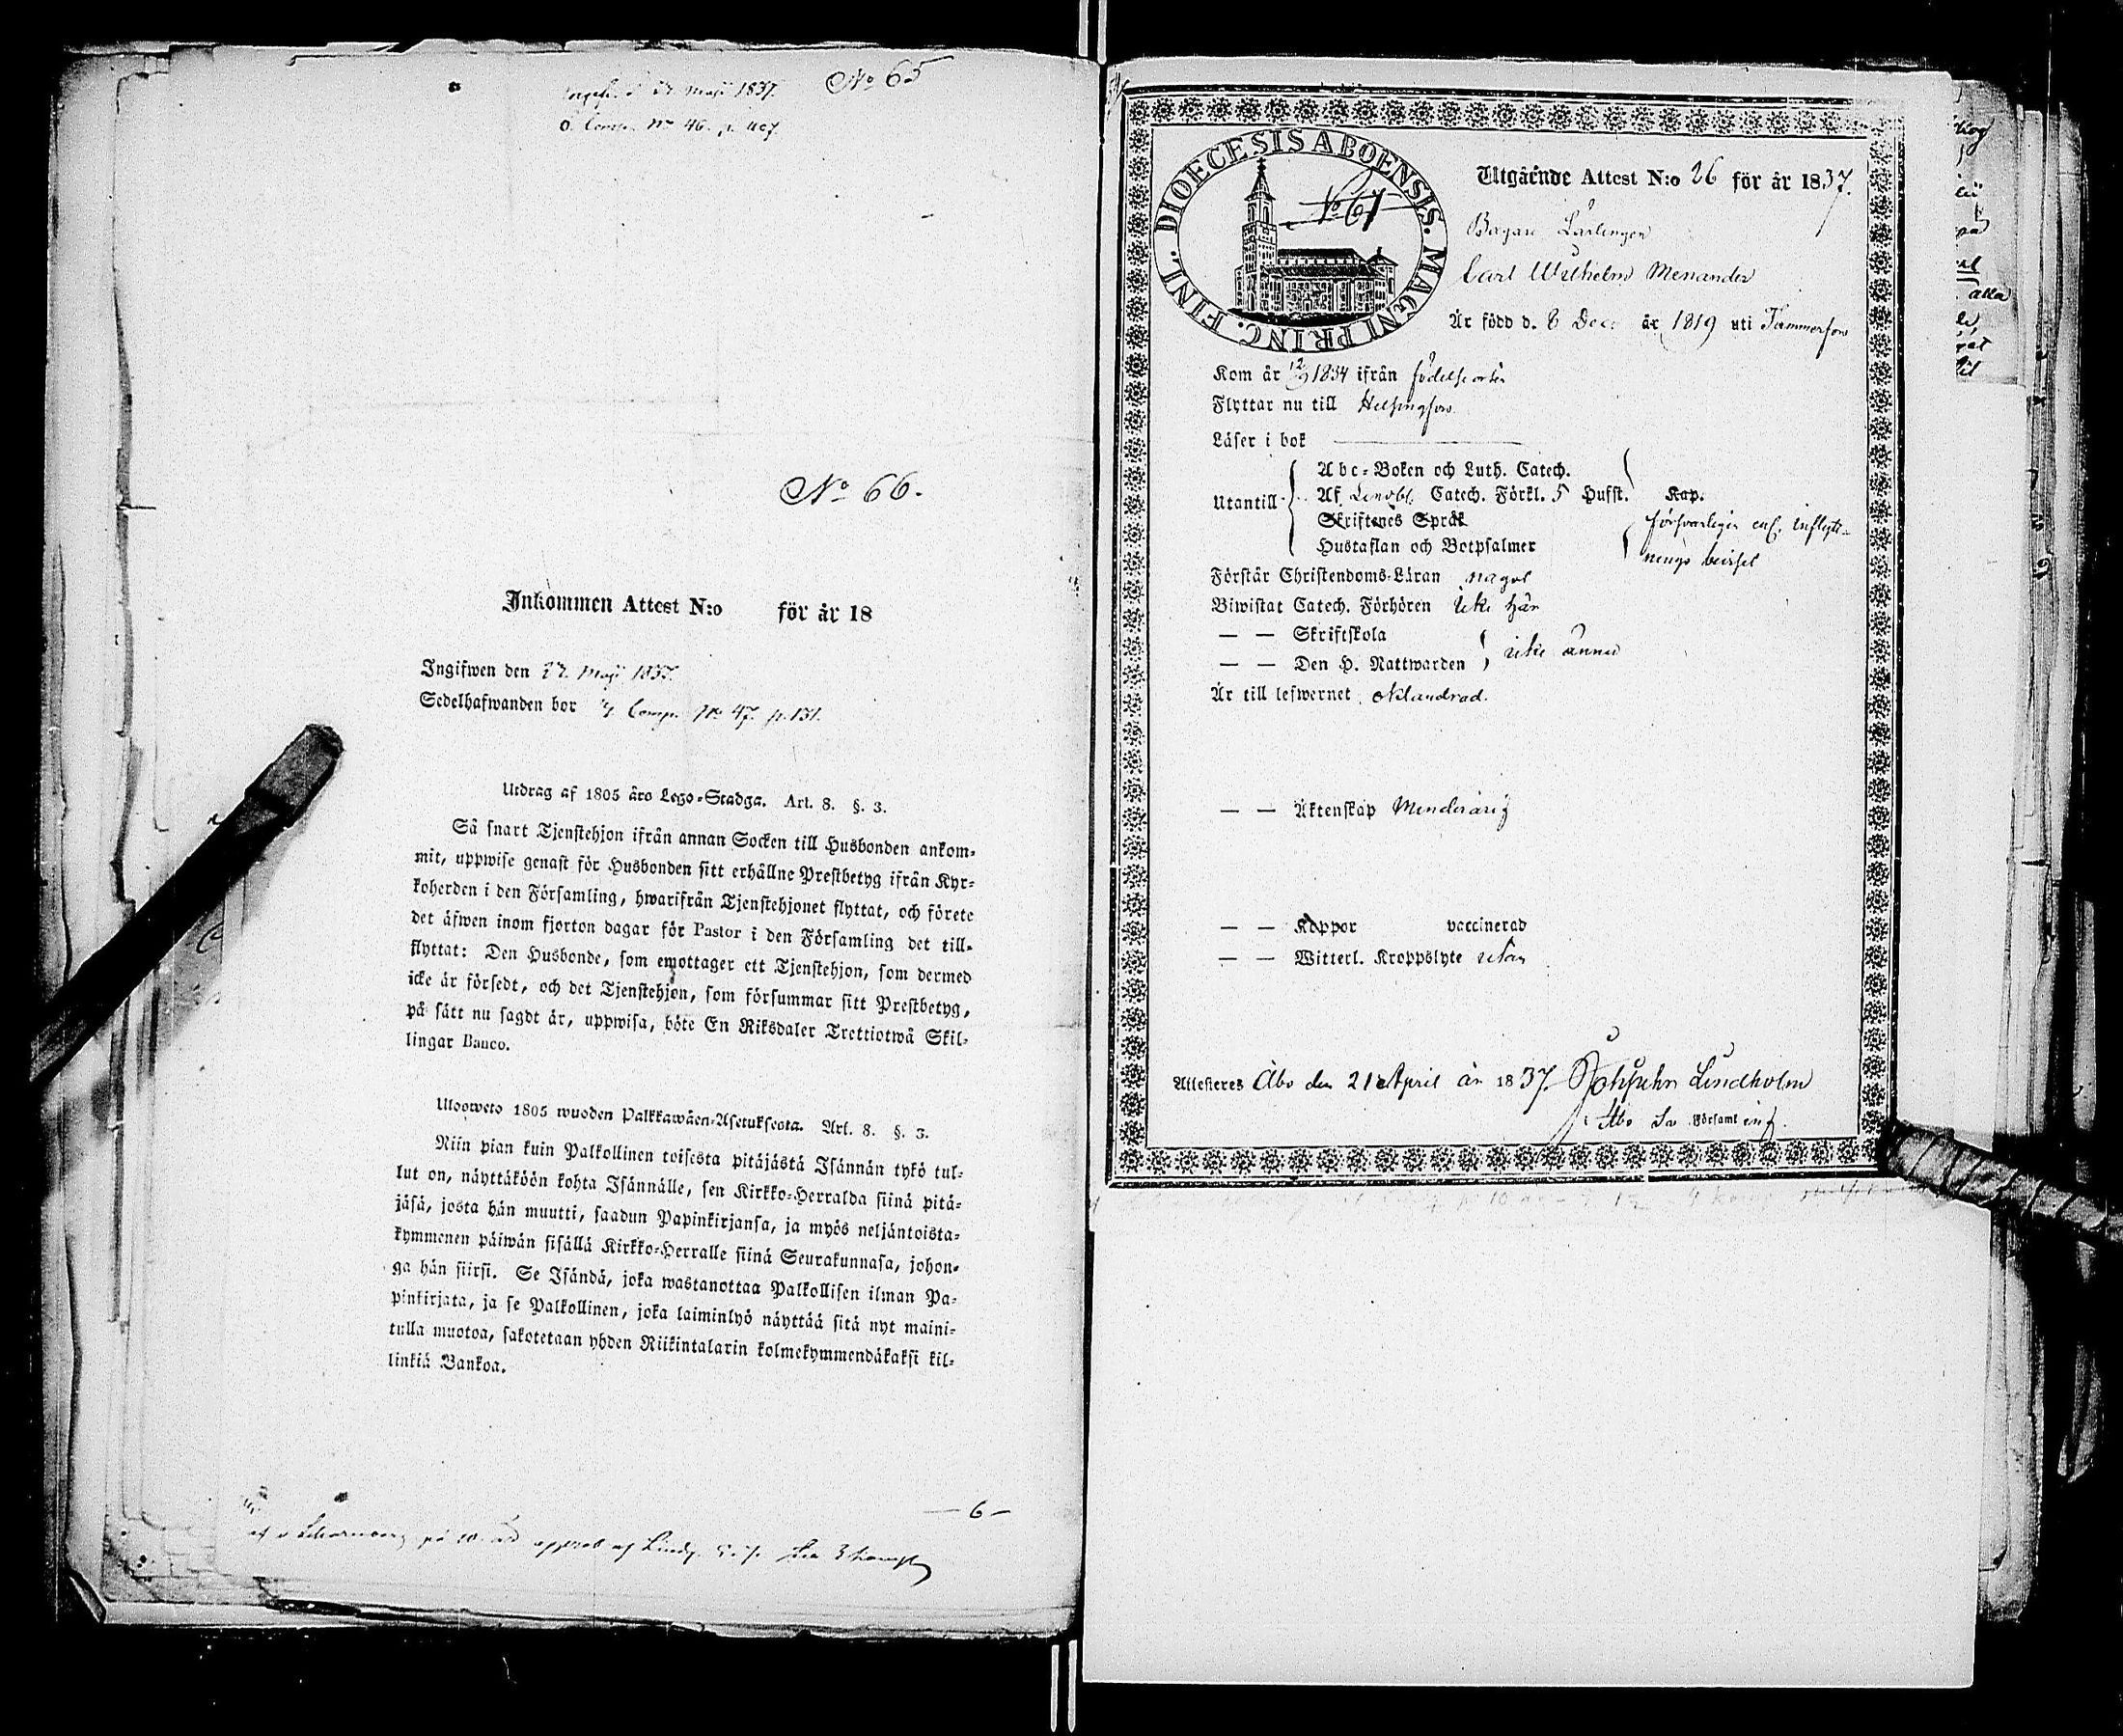 No 65
Maji 1837.
Comp. No 46. p. 407.
No 66.
Inkommen Attest N:o för år 18
Ingifwen den 27. Maji 1837.
Sedelhafwanden bor 4 Comp. No 47. p. 131.
Utdrag af 1805 års Lego-Stadga. Art. 8. §. 3.
Så snart Tjenstehjon ifrån annan Socken till Husbonden ankom-
mit, uppwise genast för Husbonden sitt erhållne Prestbetyg ifrån Kyr-
koherden i den Församling, hwarifrån Tjenstehjonet flyttat, och förete
det äfwen inom fjorton dagar för Pastor i den Församling det till-
flyttat: Den Husbonde, som emottager ett Tjenstehjon, som dermed
icke är försedt, och det Tjenstehjon, som försummar sitt Prestbetyg,
på sätt nu sagdt är, uppwisa, böte En Riksdaler Trettiotwå Skil-
lingar Banco.
Uloosweto 1805 wuoden Palkkawäen-Asetuksesta. Art. 8. §. 3.
Niin pian kuin Palkollinen toisesta pitäjästä Isännän tykö tul-
lut on, näyttäköön kohta Isännälle, sen Kirkko-Herralda siinä pitä-
jäsä, josta hän muutti, saadun Papinkirjansa, ja myös neljäntoista-
kymmenen päiwän sisällä Kirkko-Herralle siinä Seurakunnasa, johon-
ga hän siirsi. Se Isändä, joka wastanottaa Palkollisen ilman Pa-
pinkirjata, ja se Palkollinen, joka laiminlyö näyttää sitä nyt maini-
tulla muotoa, sakotetaan yhden Riikintalarin kolmekymmendäkaksi kil-
linkiä Bankoa.
— 6 —
på 10
DIOECESIS ABOENSIS. MAGNI PRINC. FINL.
No 67
Utgående Attest N:o 26 för år 1837.
Bagare Lärlingen
Carl Wilhelm Menander
Är född d. 8 Dec. år 1819 uti Tammerfors
Kom år 12/9 1834 ifrån födelseorten
Flyttar nu till Helsingfors
Läser i bok
Utantill
Abc-Boken och Luth. Catech.
Af Lindbl. Catech. Förkl. 5 Hufst. Kap.
Skriftenes Språk
Hustaflan och Botpsalmer
försvarligen enl. inflytt-
nings beviset
Förstår Christendoms-Läran något
Biwistat Catech. Förhören icke här
— — Skriftskola
— — Den H. Nattwarden icke ännu
Är till lefwernet oklandrad.
— — Äktenskap Minderårig
— — Koppor vaccinerad
— — Witterl. Kroppslyte utan
Attesteras Åbo den 21 April år 1837. Lindholm
Åbo Sv. Församling.